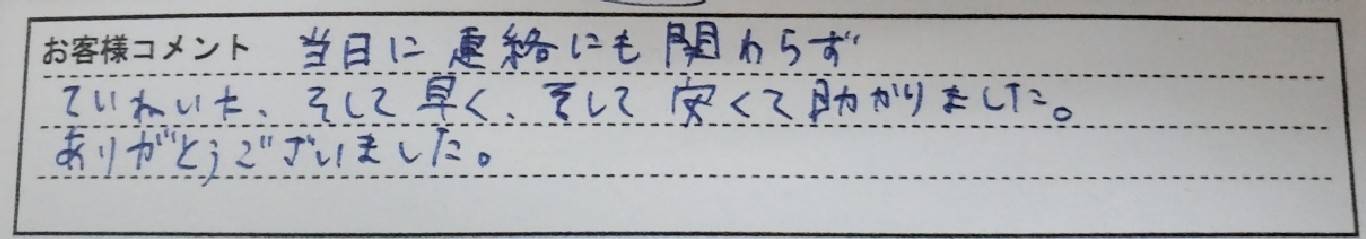 お客様コメント 当日に連絡にも関わらず
ていねいた、そして早く、そして安くて助かりました。
ありがとうございました。